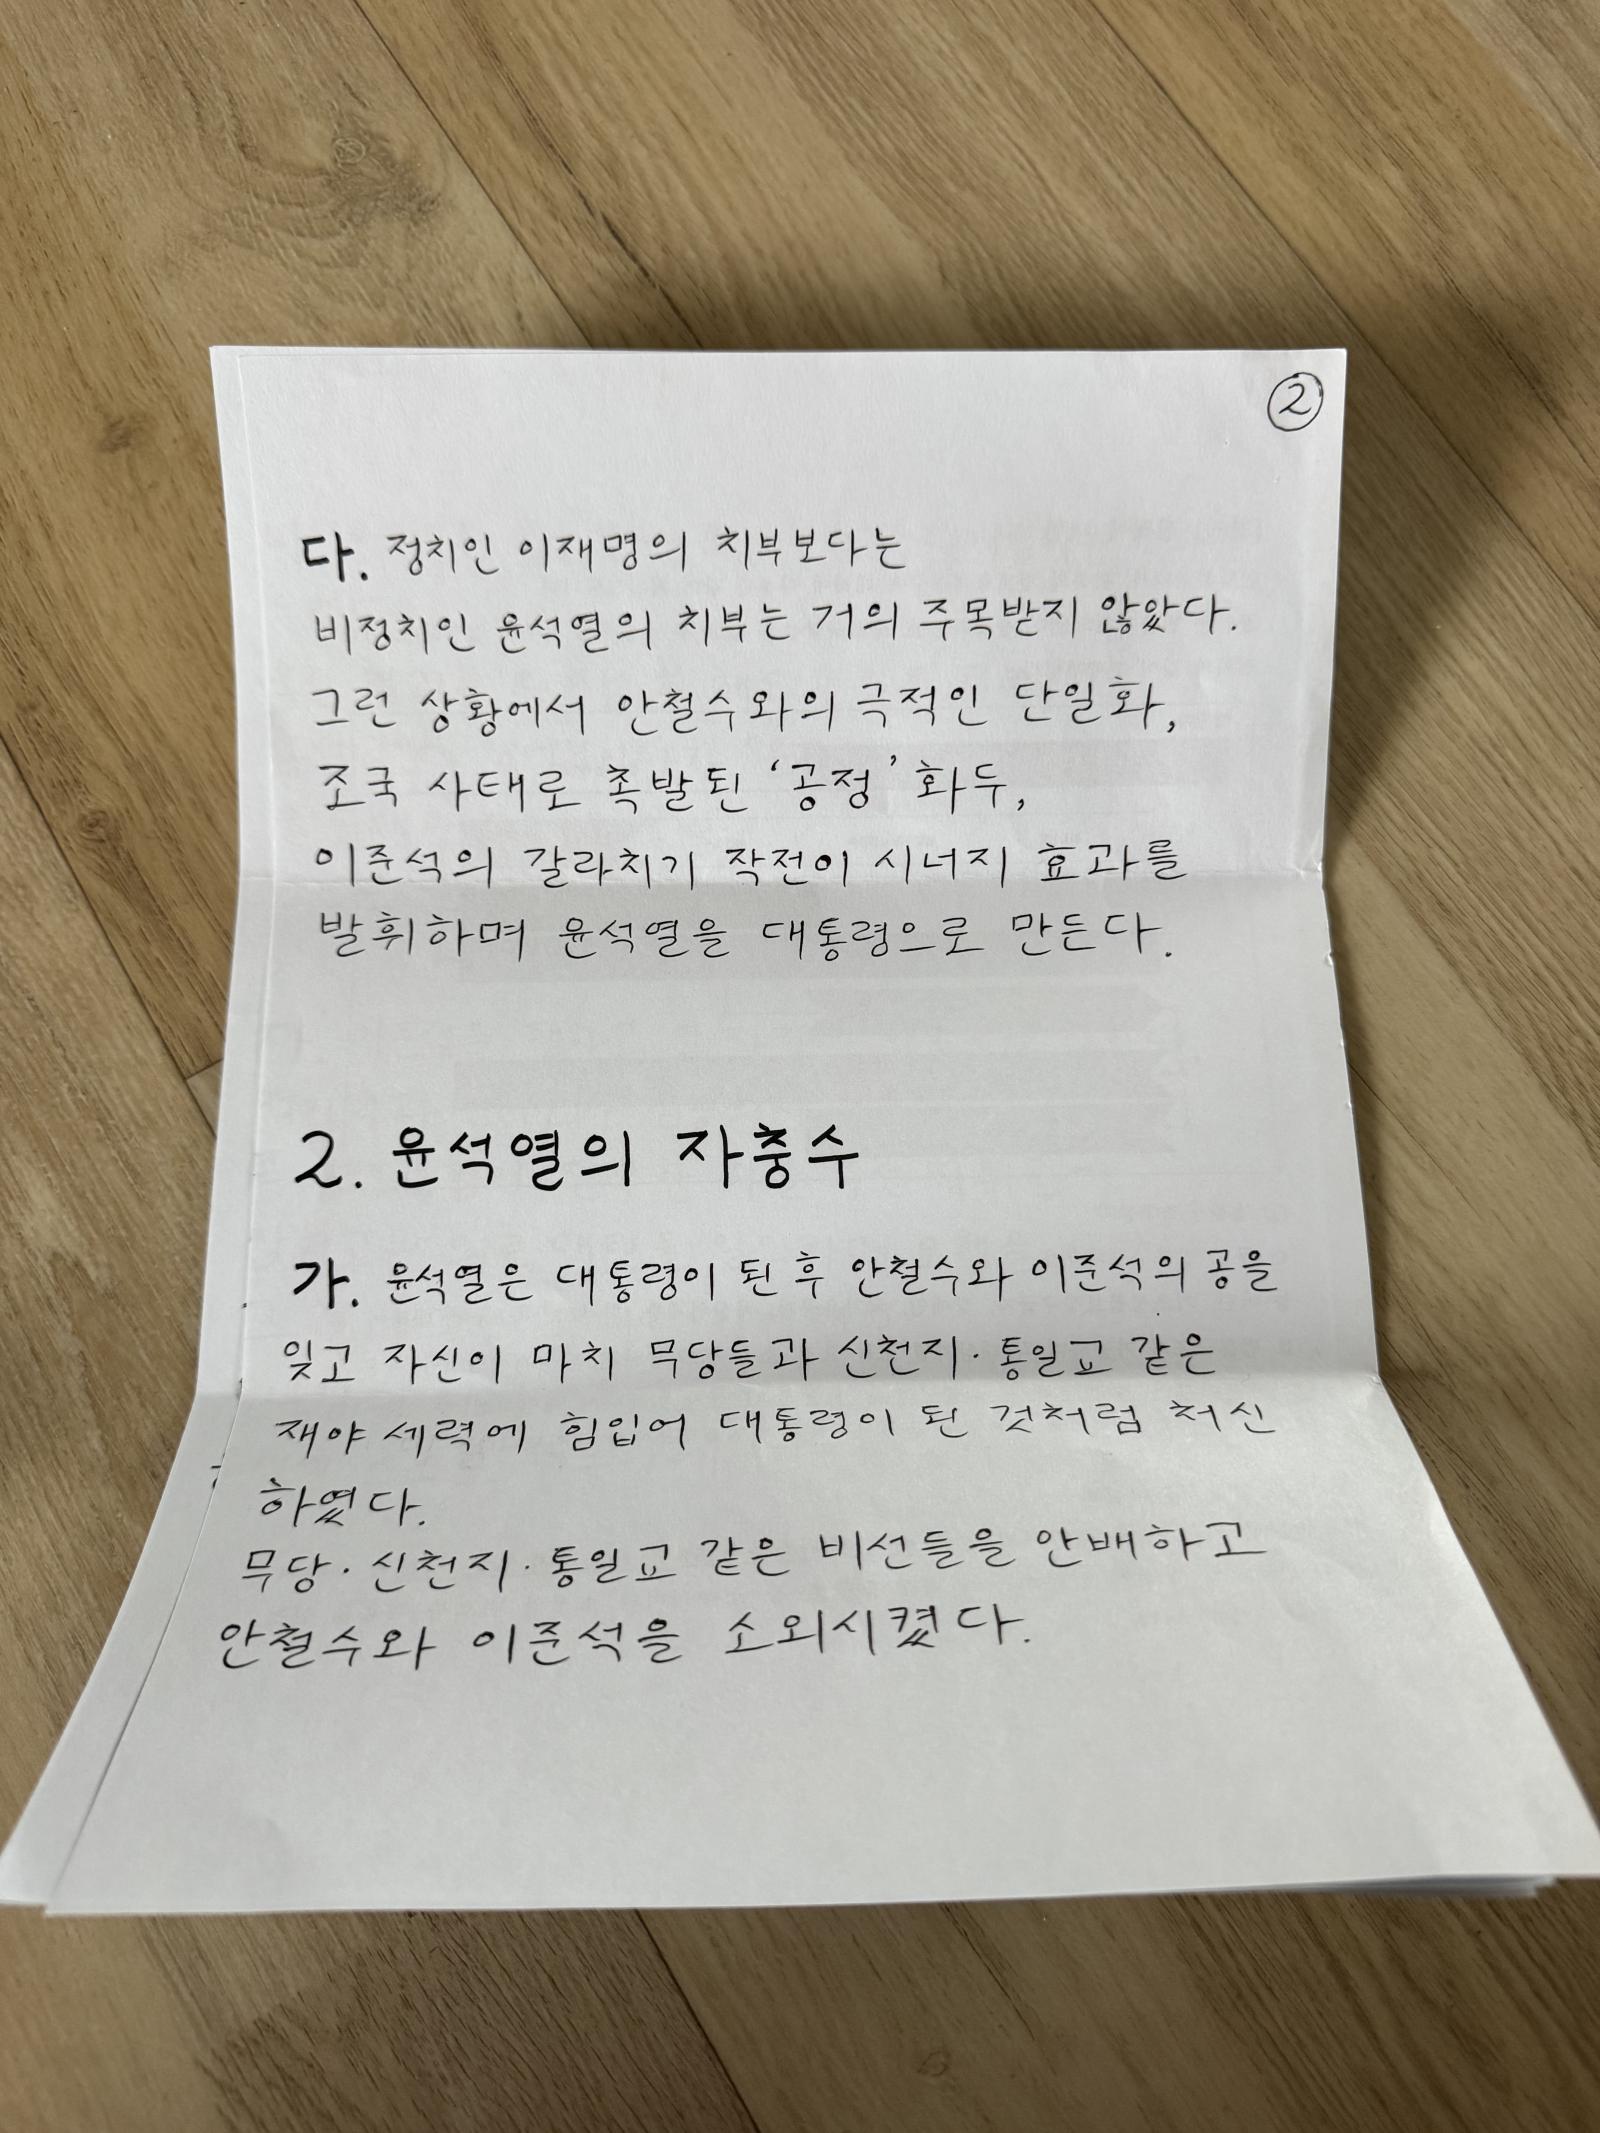 ②
다. 정치인 이재명의 치부보다는
비정치인 윤석열의 치부는 거의 주목받지 않았다.
그런 상황에서 안철수와의 극적인 단일화,
조국 사태로 촉발된 ‘공정’ 화두,
이준석의 갈라치기 작전이 시너지 효과를
발휘하며 윤석열을 대통령으로 만든다.
2. 윤석열의 자충수
가. 윤석열은 대통령이 된 후 안철수와 이준석의 공을
잊고 자신이 마치 무당들과 신천지·통일교 같은
재야 세력에 힘입어 대통령이 된 것처럼 처신
하였다.
무당·신천지·통일교 같은 비선들을 안배하고
안철수와 이준석을 소외시켰다.